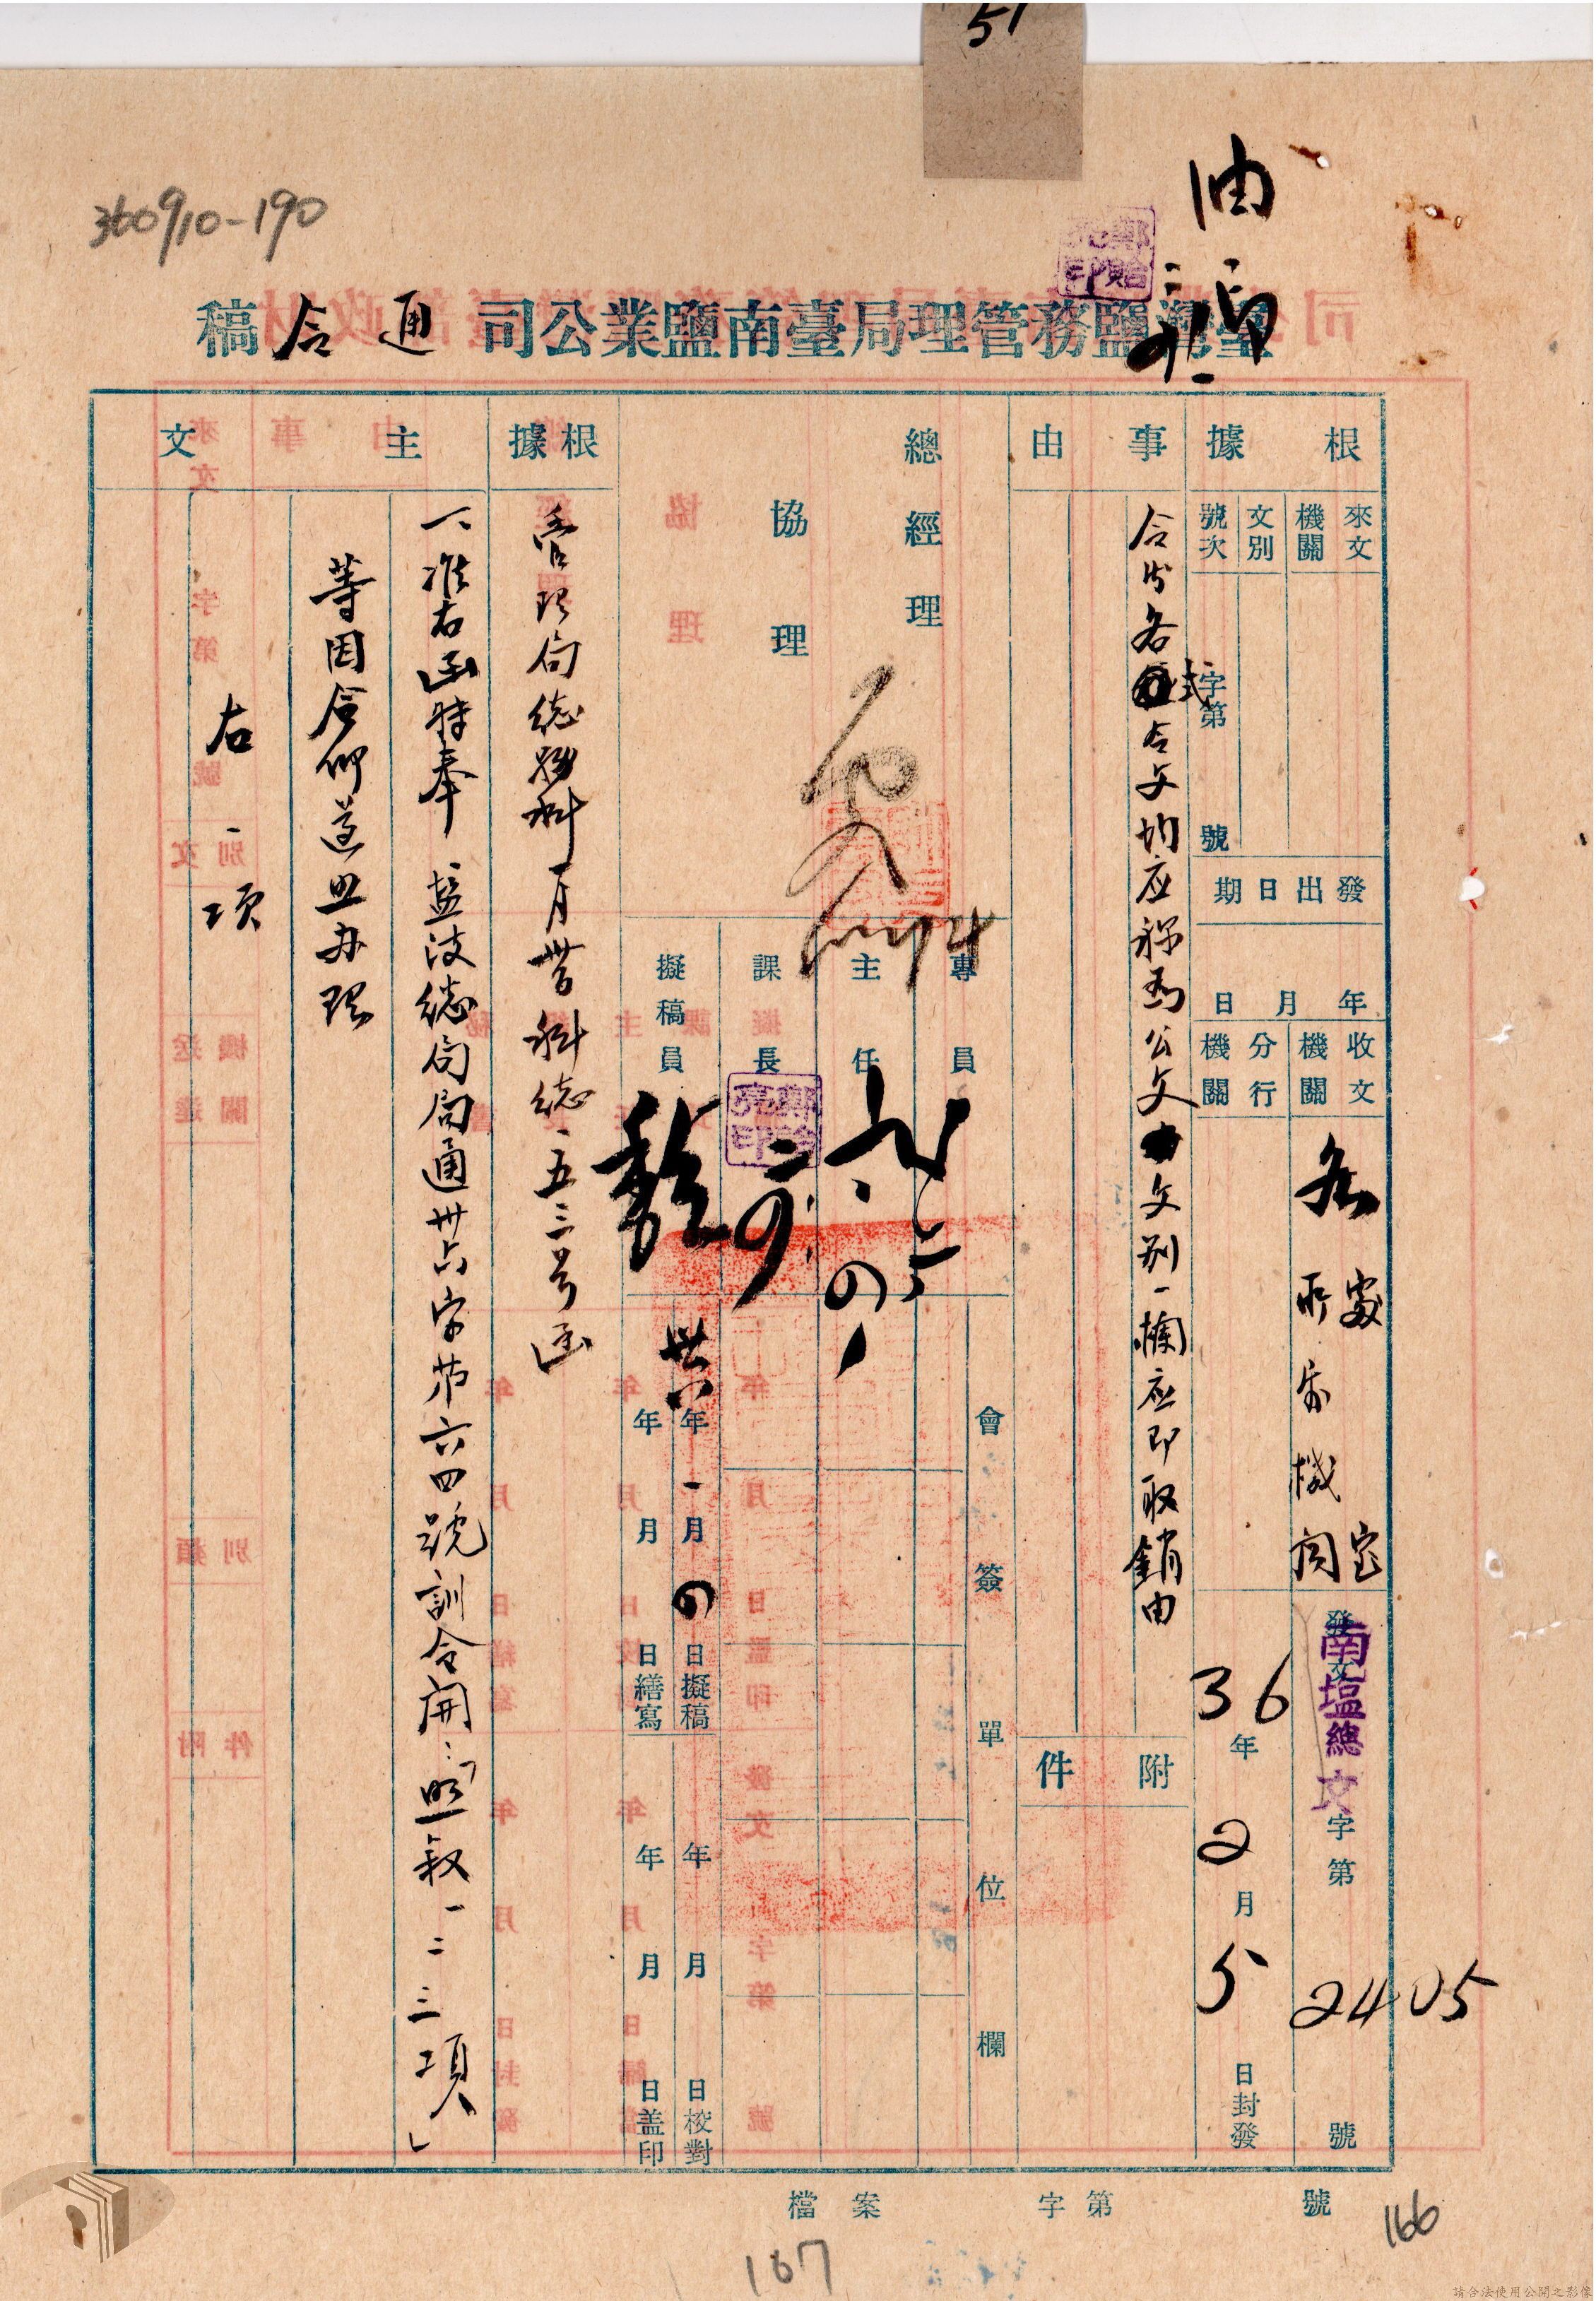 51
360910-190
油印
臺灣鹽務管理局臺南鹽業公司通令稿
根據
來文機關
文別
號次
字第 號
發出日期
年 月 日
收文機關
分行機關
各處室
所屬機関
發文
南塩總文
字第 2405 號
36年2月5日封發
事由
令發各式令文均应称為公文文別一欄应即取銷由
附件
總經理
協理
專員
主任
課長
擬稿員
鄭貽亮印
會簽單位欄
卅六年一月 日擬稿
年 月 日校對
年 月 日繕寫
年 月 日盖印
根據
管理局總務科一月 科總一五三号函
主文
一、准右函特奉 鹽政總局局通卅六字第六四號訓令開：「照叙一二三項」
等因合仰遵照办理
右 項
檔案 字第 號
166
167
請合法使用公開之影像